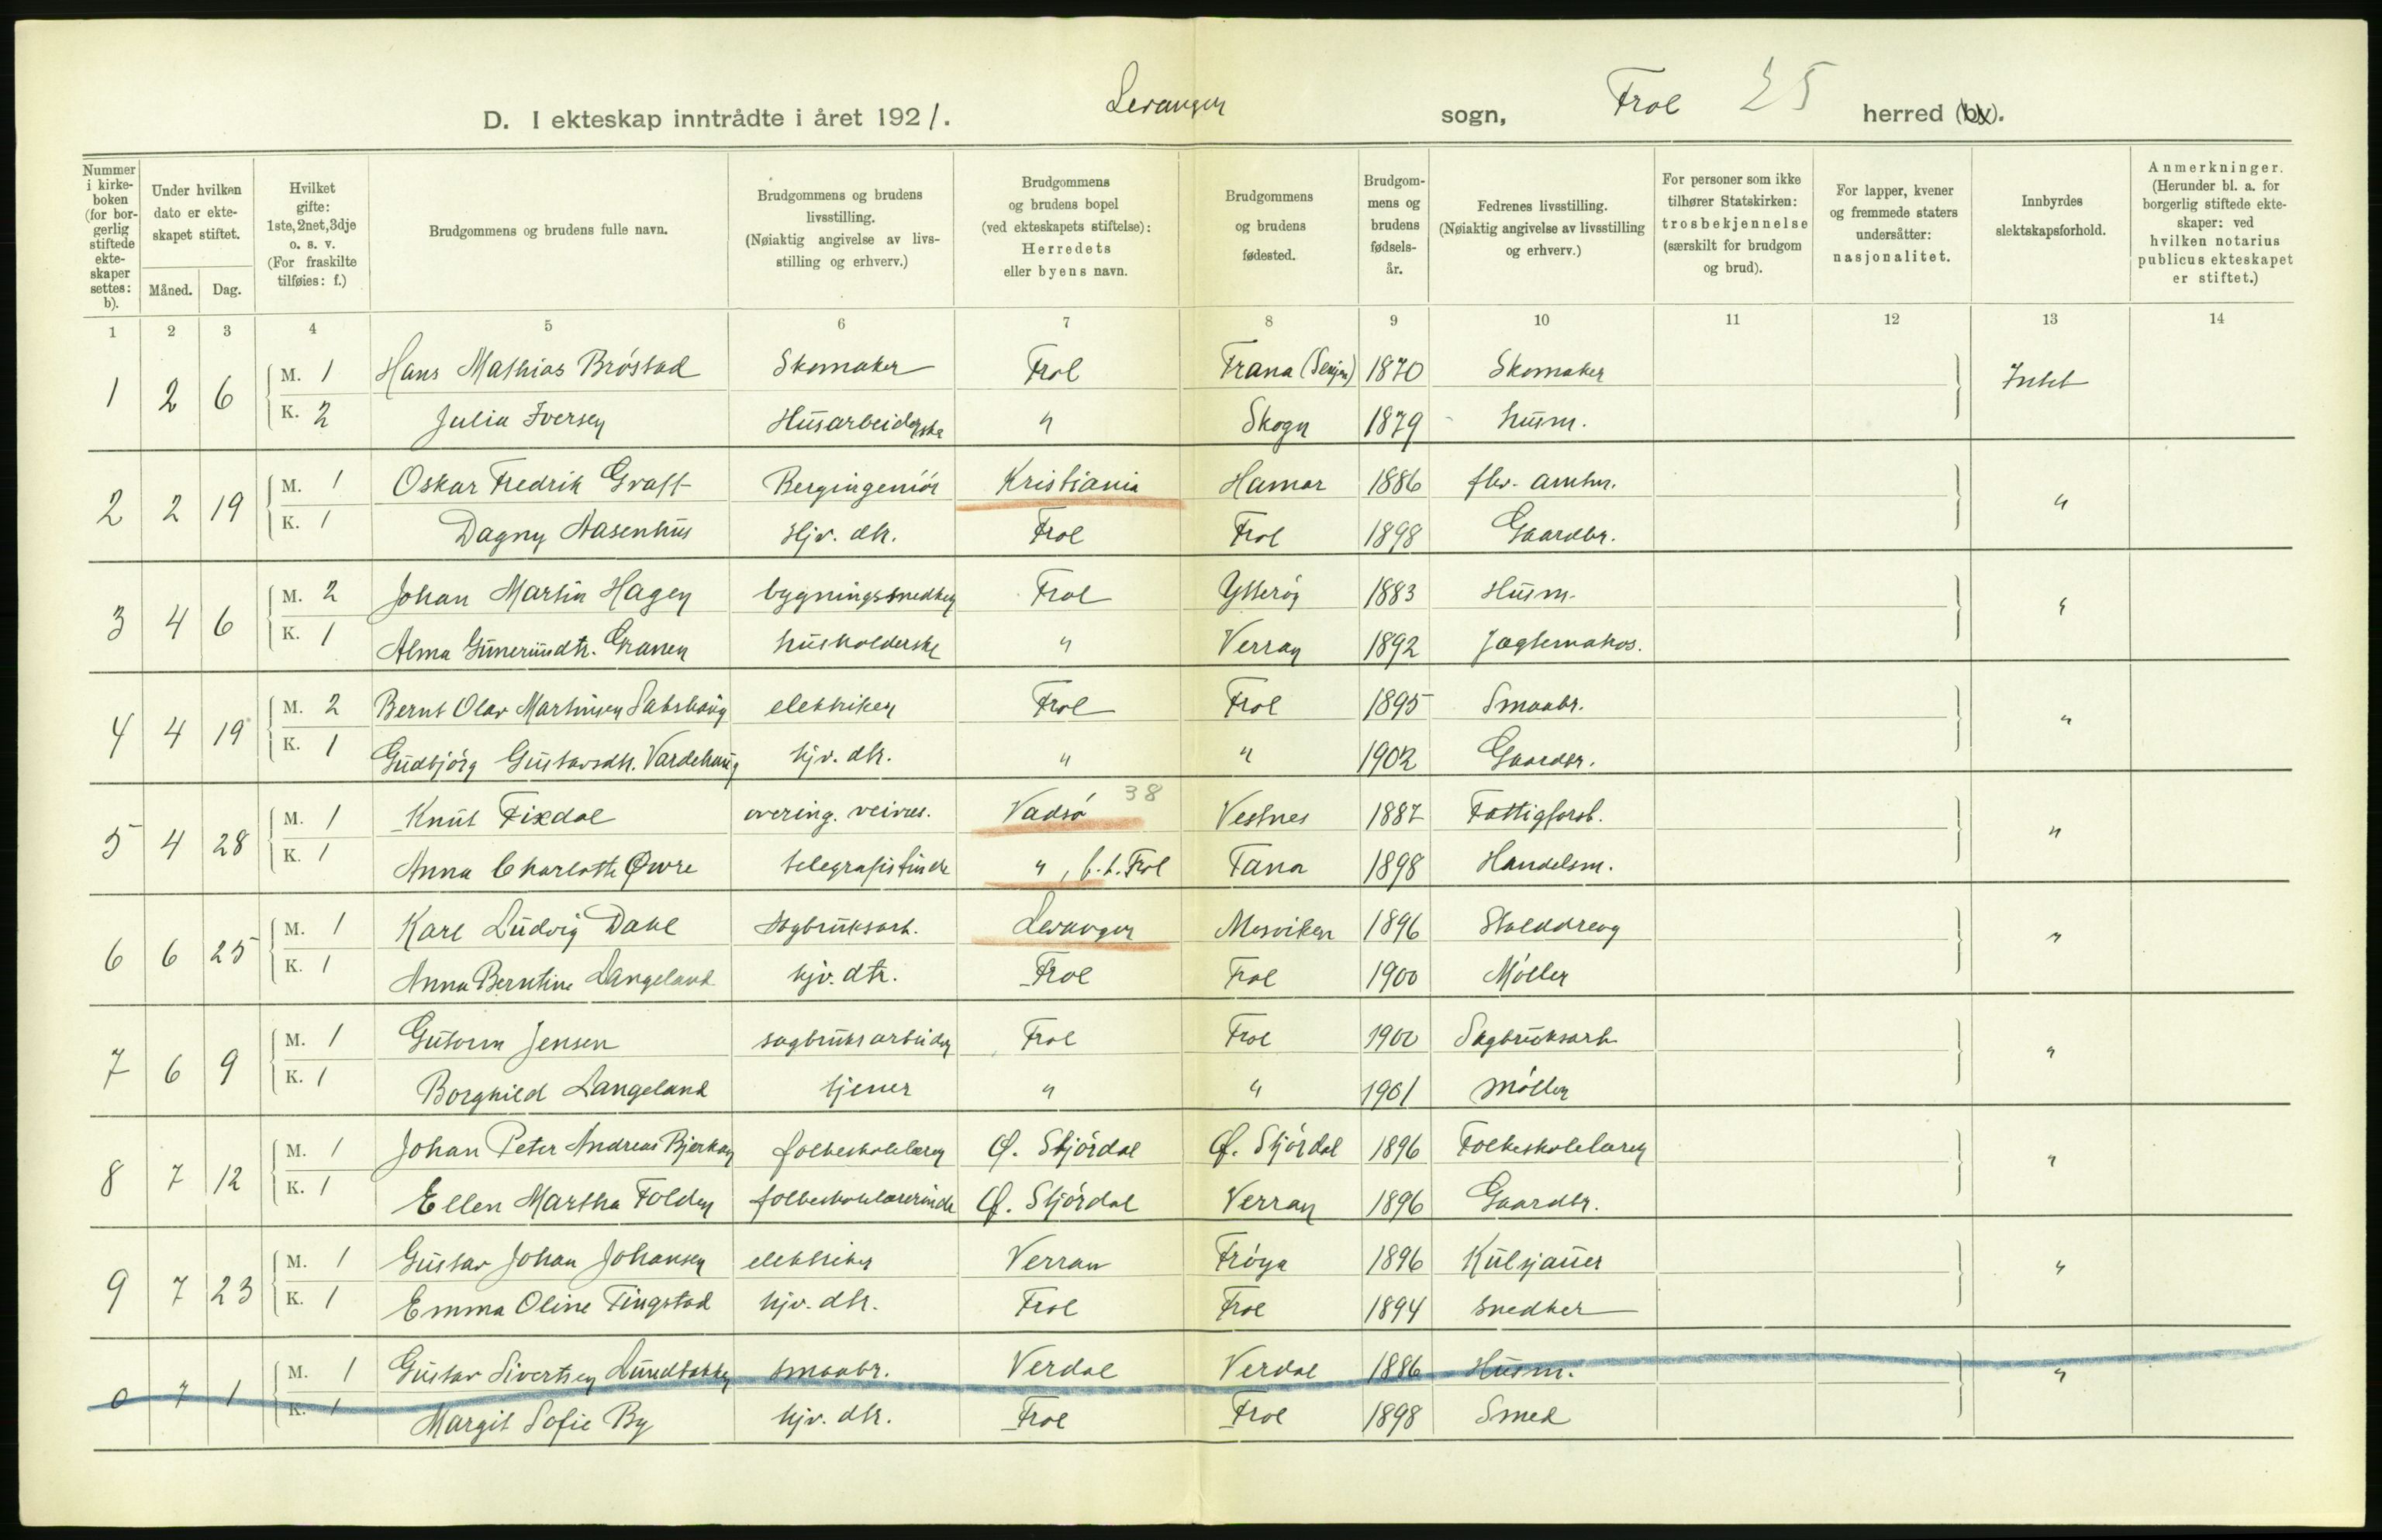 D. I ekteskap inntrådte i året 1921. Levanger sogn, Frol 25 herred (by).
Nummer i kirkeboken (for borgerlig stiftede ekteskaper settes: b).
Under hvilken dato er ekteskapet stiftet.
Måned. Dag.
Hvilket gifte: 1ste, 2net, 3dje o. s. v. (For fraskilte tilføies: f.)
Brudgommens og brudens fulle navn.
Brudgommens og brudens livsstilling. (Nøiaktig angivelse av livsstilling og erhverv.)
Brudgommens og brudens bopel (ved ekteskapets stiftelse): Herredets eller byens navn.
Brudgommens og brudens fødested.
Brudgommens og brudens fødselsår.
Fedrenes livsstilling. (Nøiaktig angivelse av livsstilling og erhverv.)
For personer som ikke tilhører Statskirken: trosbekjennelse (særskilt for brudgom og brud).
For lapper, kvener og fremmede staters undersåtter: nasjonalitet.
Innbyrdes slektskapsforhold.
Anmerkninger. (Herunder bl. a. for borgerlig stiftede ekteskaper: ved hvilken notarius publicus ekteskapet er stiftet.)
1 2 3 4 5 6 7 8 9 10 11 12 13 14
1 2 6 M. 1 Hans Mathias Brøstad Skomaker Frol Trana (Senjen) 1870 Skomaker Intet
K. 2 Julia Iversen Husarbeiderske " Skogn 1879 husm.
2 2 19 M. 1 Oskar Fredrik Graff Bergingeniør Kristiania Hamar 1886 fhv. amtm. "
K. 1 Dagny Aasenhus Hjv. dtr. Frol Frol 1898 Gaardbr.
3 4 6 M. 2 Johan Martin Hagen bygningssnedker Frol Ytterøy 1883 Husm. "
K. 1 Alma Granen husholderske " Verran 1892
4 4 19 M. 2 Bernt Olav Martinsen elektriker Frol Frol 1895 Smaabr. "
K. 1 Gudbjørg Gustavsdtr. Vardehaug hjv. dtr. " " 1902 Gaardbr.
5 4 28 M. 1 Knut Fixdal overing. veives. Vadsø 38 Vestnes 1887 Fattigforst. "
K. 1 Anna Charlotte Øwre telegrafistinde ", f.t. Frol Tana 1898 Handelsm.
6 6 25 M. 1 Karl Ludvig Dahl Sagbruksarb. Levanger Mosviken 1896 Stalddreng "
K. 1 Anna Berntine Langeland hjv. dtr. Frol Frol 1900 Møller
7 6 9 M. 1 Gutorm Jensen sagbruksarbeider Frol Frol 1900 Sagbruksarb. "
K. 1 Borghild Langeland tjener " " 1901 Møller
8 7 12 M. 1 Johan Peter Andreas Bjerkan folkeskolelærer Ø. Stjørdal Ø. Stjørdal 1896 Folkeskolelærer "
K. 1 Ellen Martha Folden folkeskolelærerinde Ø. Stjørdal Verran 1896 Gaardbr.
9 7 23 M. 1 Gustav Johan Johansen elektriker Verran Frøya 1896 Kulsjauer "
K. 1 Emma Oline Tingstad hjv. dtr. Frol Frol 1894 Snedker
0 7 1 M. 1 Gustav Sivertsen Lundbakken Smaabr. Verdal Verdal 1886 Husm. "
K. 1 Margit Sofie By hjv. dtr. Frol Frol 1898 Smed